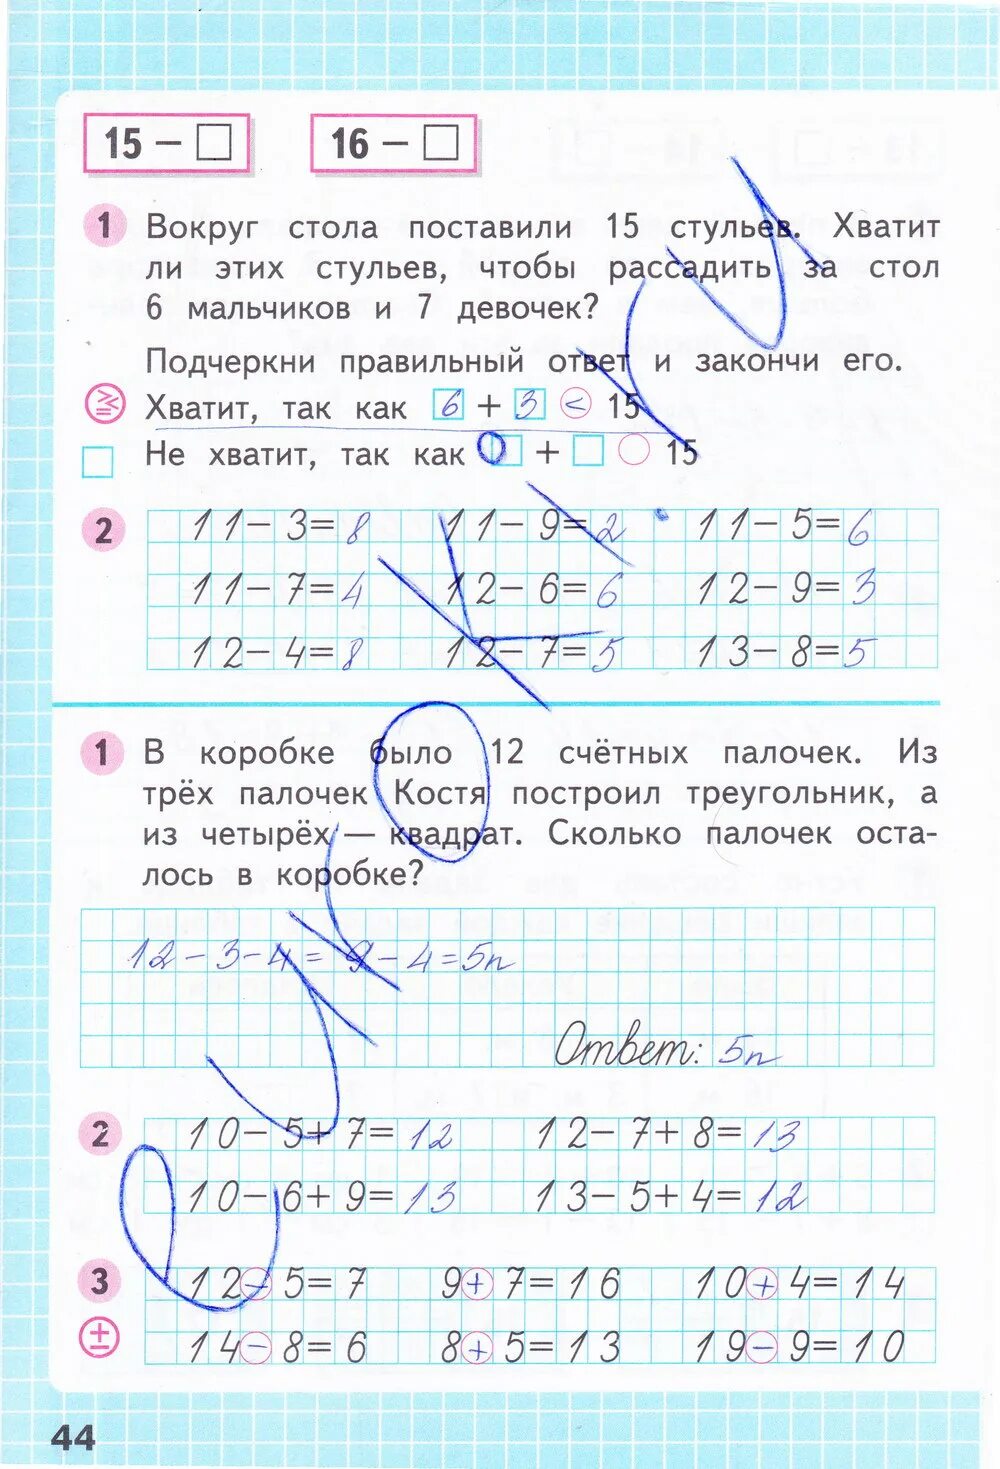 15 − □ 16 − □
1 Вокруг стола поставили 15 стульев. Хватит
ли этих стульев, чтобы рассадить за стол
6 мальчиков и 7 девочек?
Подчеркни правильный ответ и закончи его.
Хватит, так как 6 + 3 < 15
Не хватит, так как □ + □ ○ 15
2 11 − 3 = 8 11 − 9 = 2 11 − 5 = 6
11 − 7 = 4 12 − 6 = 6 12 − 9 = 3
12 − 4 = 8 12 − 7 = 5 13 − 8 = 5
1 В коробке было 12 счётных палочек. Из
трёх палочек Костя построил треугольник, а
из четырёх — квадрат. Сколько палочек оста-
лось в коробке?
12 − 3 − 4 = 9 − 4 = 5п
Ответ: 5п
2 10 − 5 + 7 = 12 12 − 7 + 8 = 13
10 − 6 + 9 = 13 13 − 5 + 4 = 12
3 12 − 5 = 7 9 + 7 = 16 10 + 4 = 14
14 − 8 = 6 8 + 5 = 13 19 − 9 = 10
44
eуроки.ru